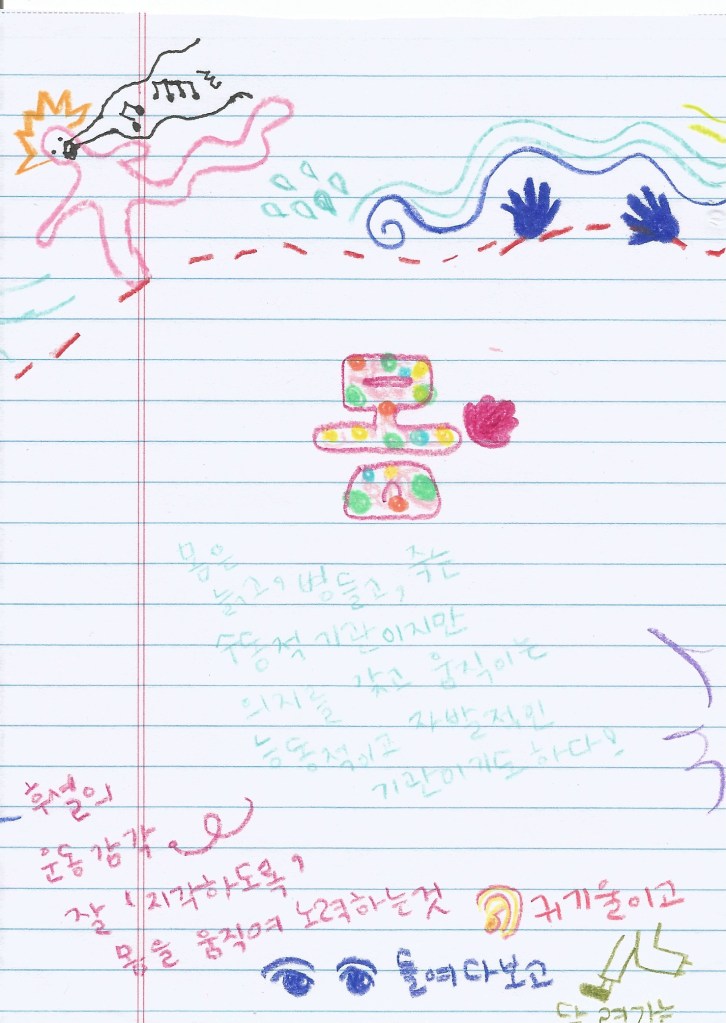 몸
몸은
늙고, 병들고, 죽는
수동적 기관이지만
의지를 갖고 움직이는
능동적이고 자발적인
기관이기도 하다!
후설의
운동감각
잘 '지각하도록'
몸을 움직여 노력하는것
귀기울이고
들여다보고